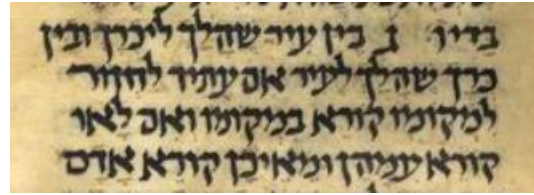 בדיו ג בין עיר שהלך ליכרך ובין
כרך שהלך לעיר אם עתיד לחזור
למקומו קורא במקומו ואם לאו
קורא עמיהן ומאיכן קורא אדם